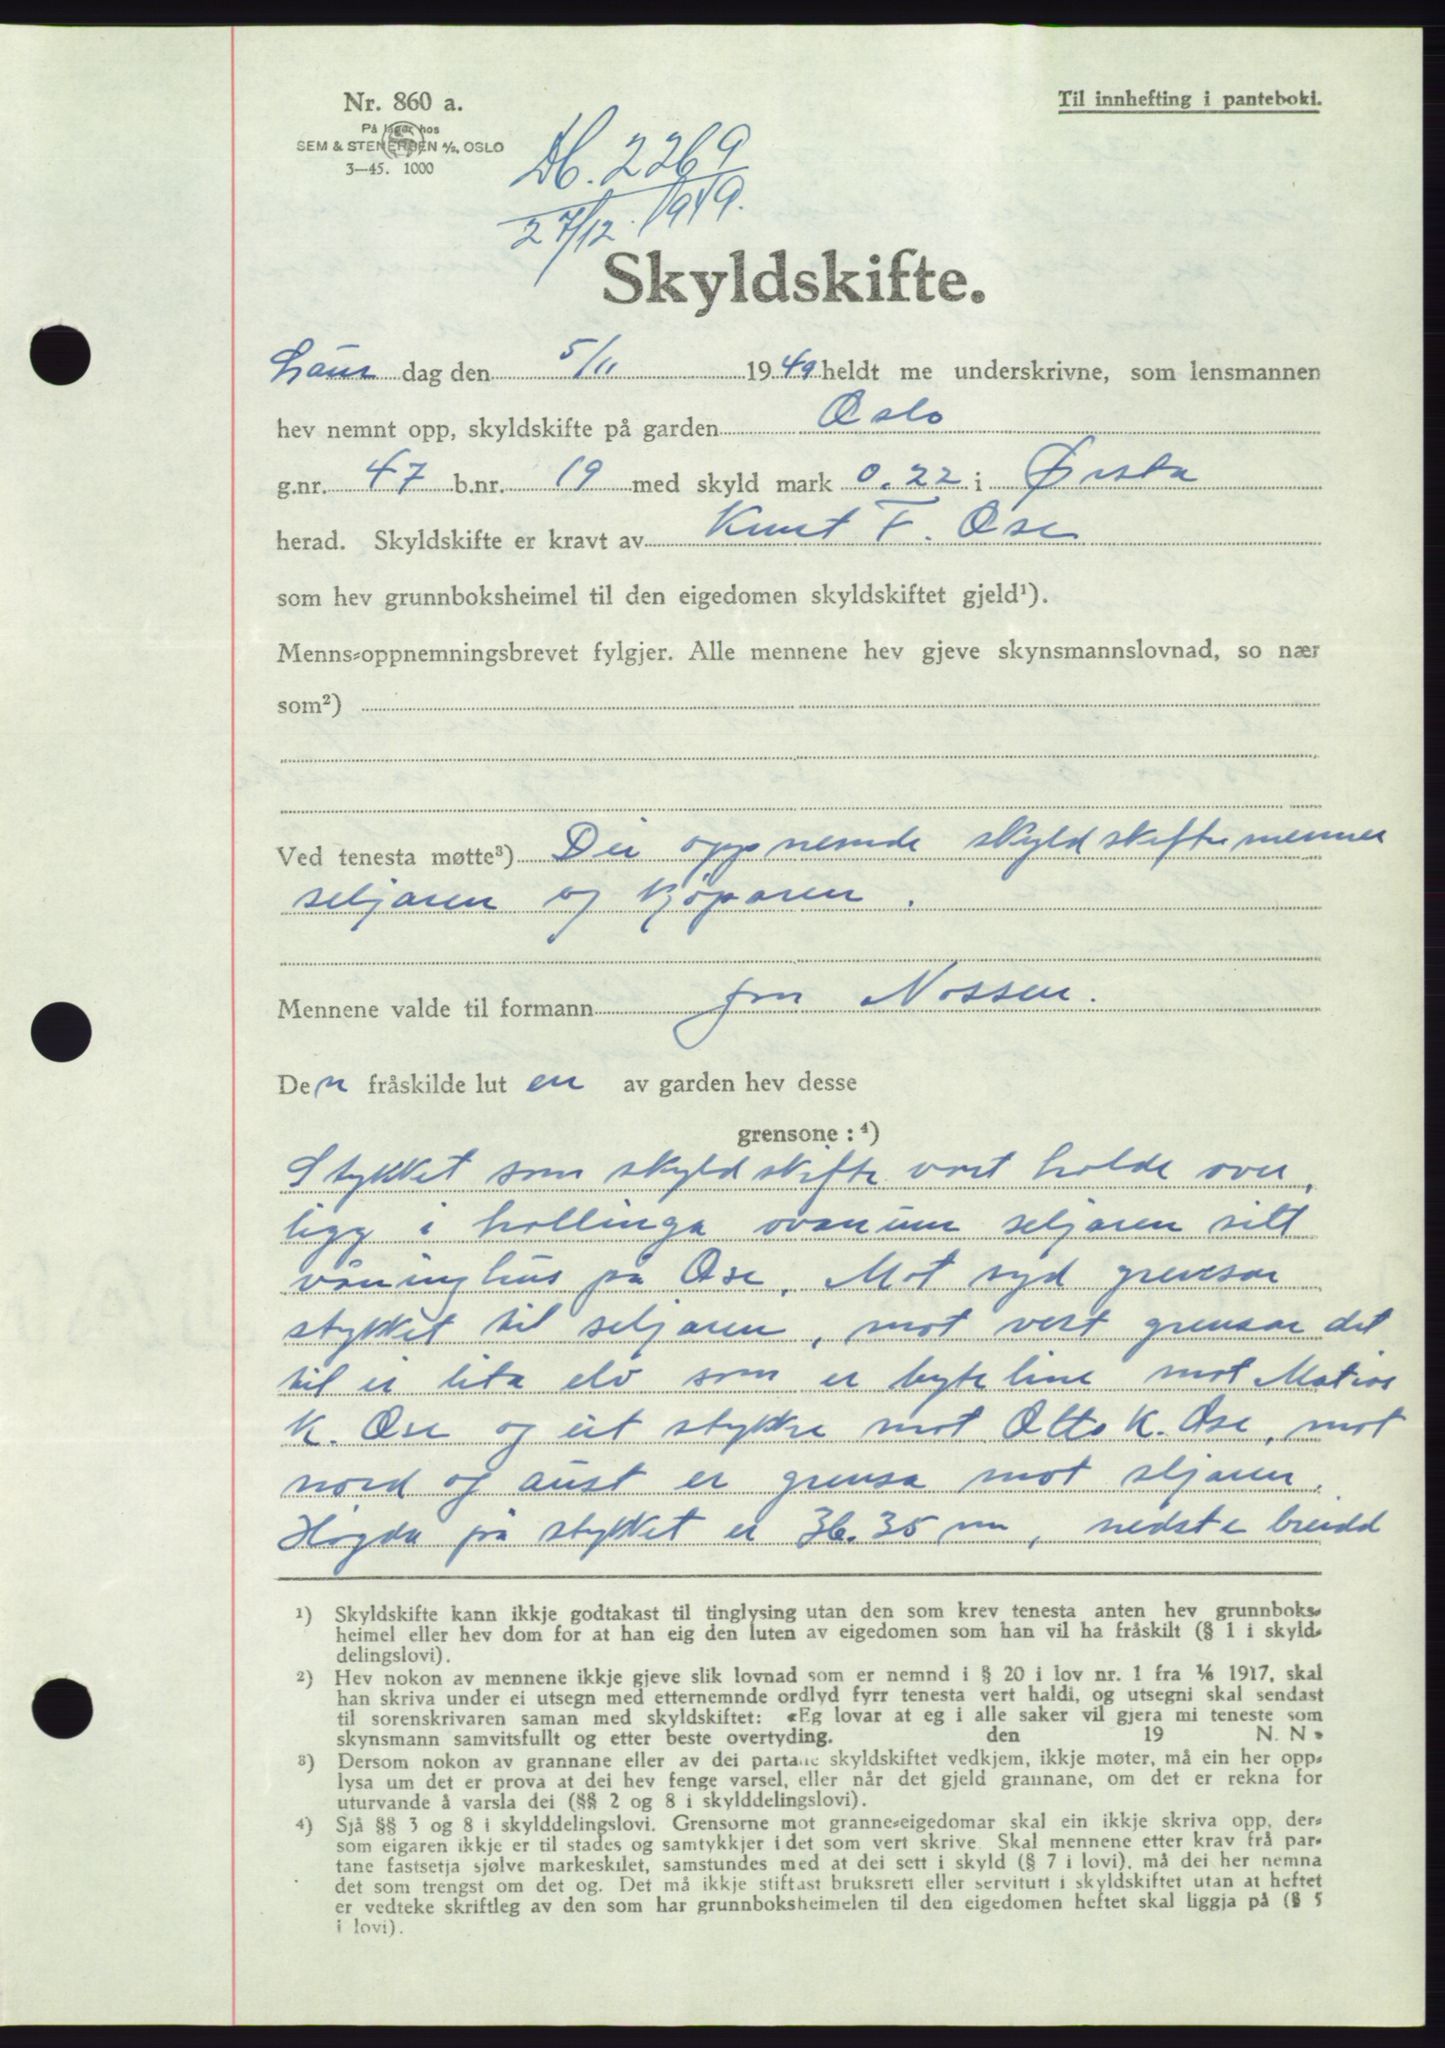 Nr. 860 a.
Til innhefting i panteboki.
På lager hos
SEM & STENERSEN A/S, OSLO
3—45. 1000
Db. 2269
27/12. 1949.
Skyldskifte.
Laur dag den 5/11 1949 heldt me underskrivne, som lensmannen
hev nemnt opp, skyldskifte på garden Oslo
g.nr. 47 b.nr. 19 med skyld mark 0.22 i Ørsta
herad. Skyldskifte er kravt av Knut F. Ose
som hev grunnboksheimel til den eigedomen skyldskiftet gjeld¹).
Menns-oppnemningsbrevet fylgjer. Alle mennene hev gjeve skynsmannslovnad, so nær
som²)
Ved tenesta møtte³) Dei oppnemde skyldskiftemennene
seljaren og kjöparen.
Mennene valde til formann Jon Nossen.
Den fråskilde lut en av garden hev desse
grensone: ⁴)
Stykket som skyldskifte vart halde over,
ligg i hallinga ovanum seljaren sitt
våninghus på Ose. Mot syd grensar
stykket til seljaren, mot vest grensar det
til ei lita elv som er byteline mot Matias
K. Ose og eit stykke mot Otto K. Ose, mot
nord og aust er grensa mot seljaren.
Høgda på stykket er 36.35 m, nedste breidd
¹) Skyldskifte kann ikkje godtakast til tinglysing utan den som krev tenesta anten hev grunnboks-
heimel eller hev dom for at han eig den luten av eigedomen som han vil ha fråskilt (§ 1 i skyld-
delingslovi).
²) Hev nokon av mennene ikkje gjeve slik lovnad som er nemnd i § 20 i lov nr. 1 fra 1/6 1917, skal
han skriva under ei utsegn med etternemnde ordlyd fyrr tenesta vert haldi, og utsegni skal sendast
til sorenskrivaren saman med skyldskiftet: «Eg lovar at eg i alle saker vil gjera mi teneste som
skynsmann samvitsfullt og etter beste overtyding. den 19 N. N»
³) Dersom nokon av grannane eller av dei partane skyldskiftet vedkjem, ikkje møter, må ein her opp-
lysa um det er prova at dei hev fenge varsel, eller når det gjeld grannane, om det er rekna for
uturvande å varsla dei (§§ 2 og 8 i skylddelingslovi).
⁴) Sjå §§ 3 og 8 i skylddelingslovi. Grensorne mot granne-eigedomar skal ein ikkje skriva opp, der-
som eigaren ikkje er til stades og samtykkjer i det som vert skrive. Skal mennene etter krav frå par-
tane fastsetja sjølve markeskilet, samstundes med at dei sett i skyld (§ 7 i lovi), må dei her nemna
det som trengst om det og. Det må ikkje stiftast bruksrett eller servitutt i skyldskiftet utan at heftet
er vedteke skriftleg av den som har grunnboksheimelen til den eigedomen heftet skal liggja på (§ 5
i lovi).